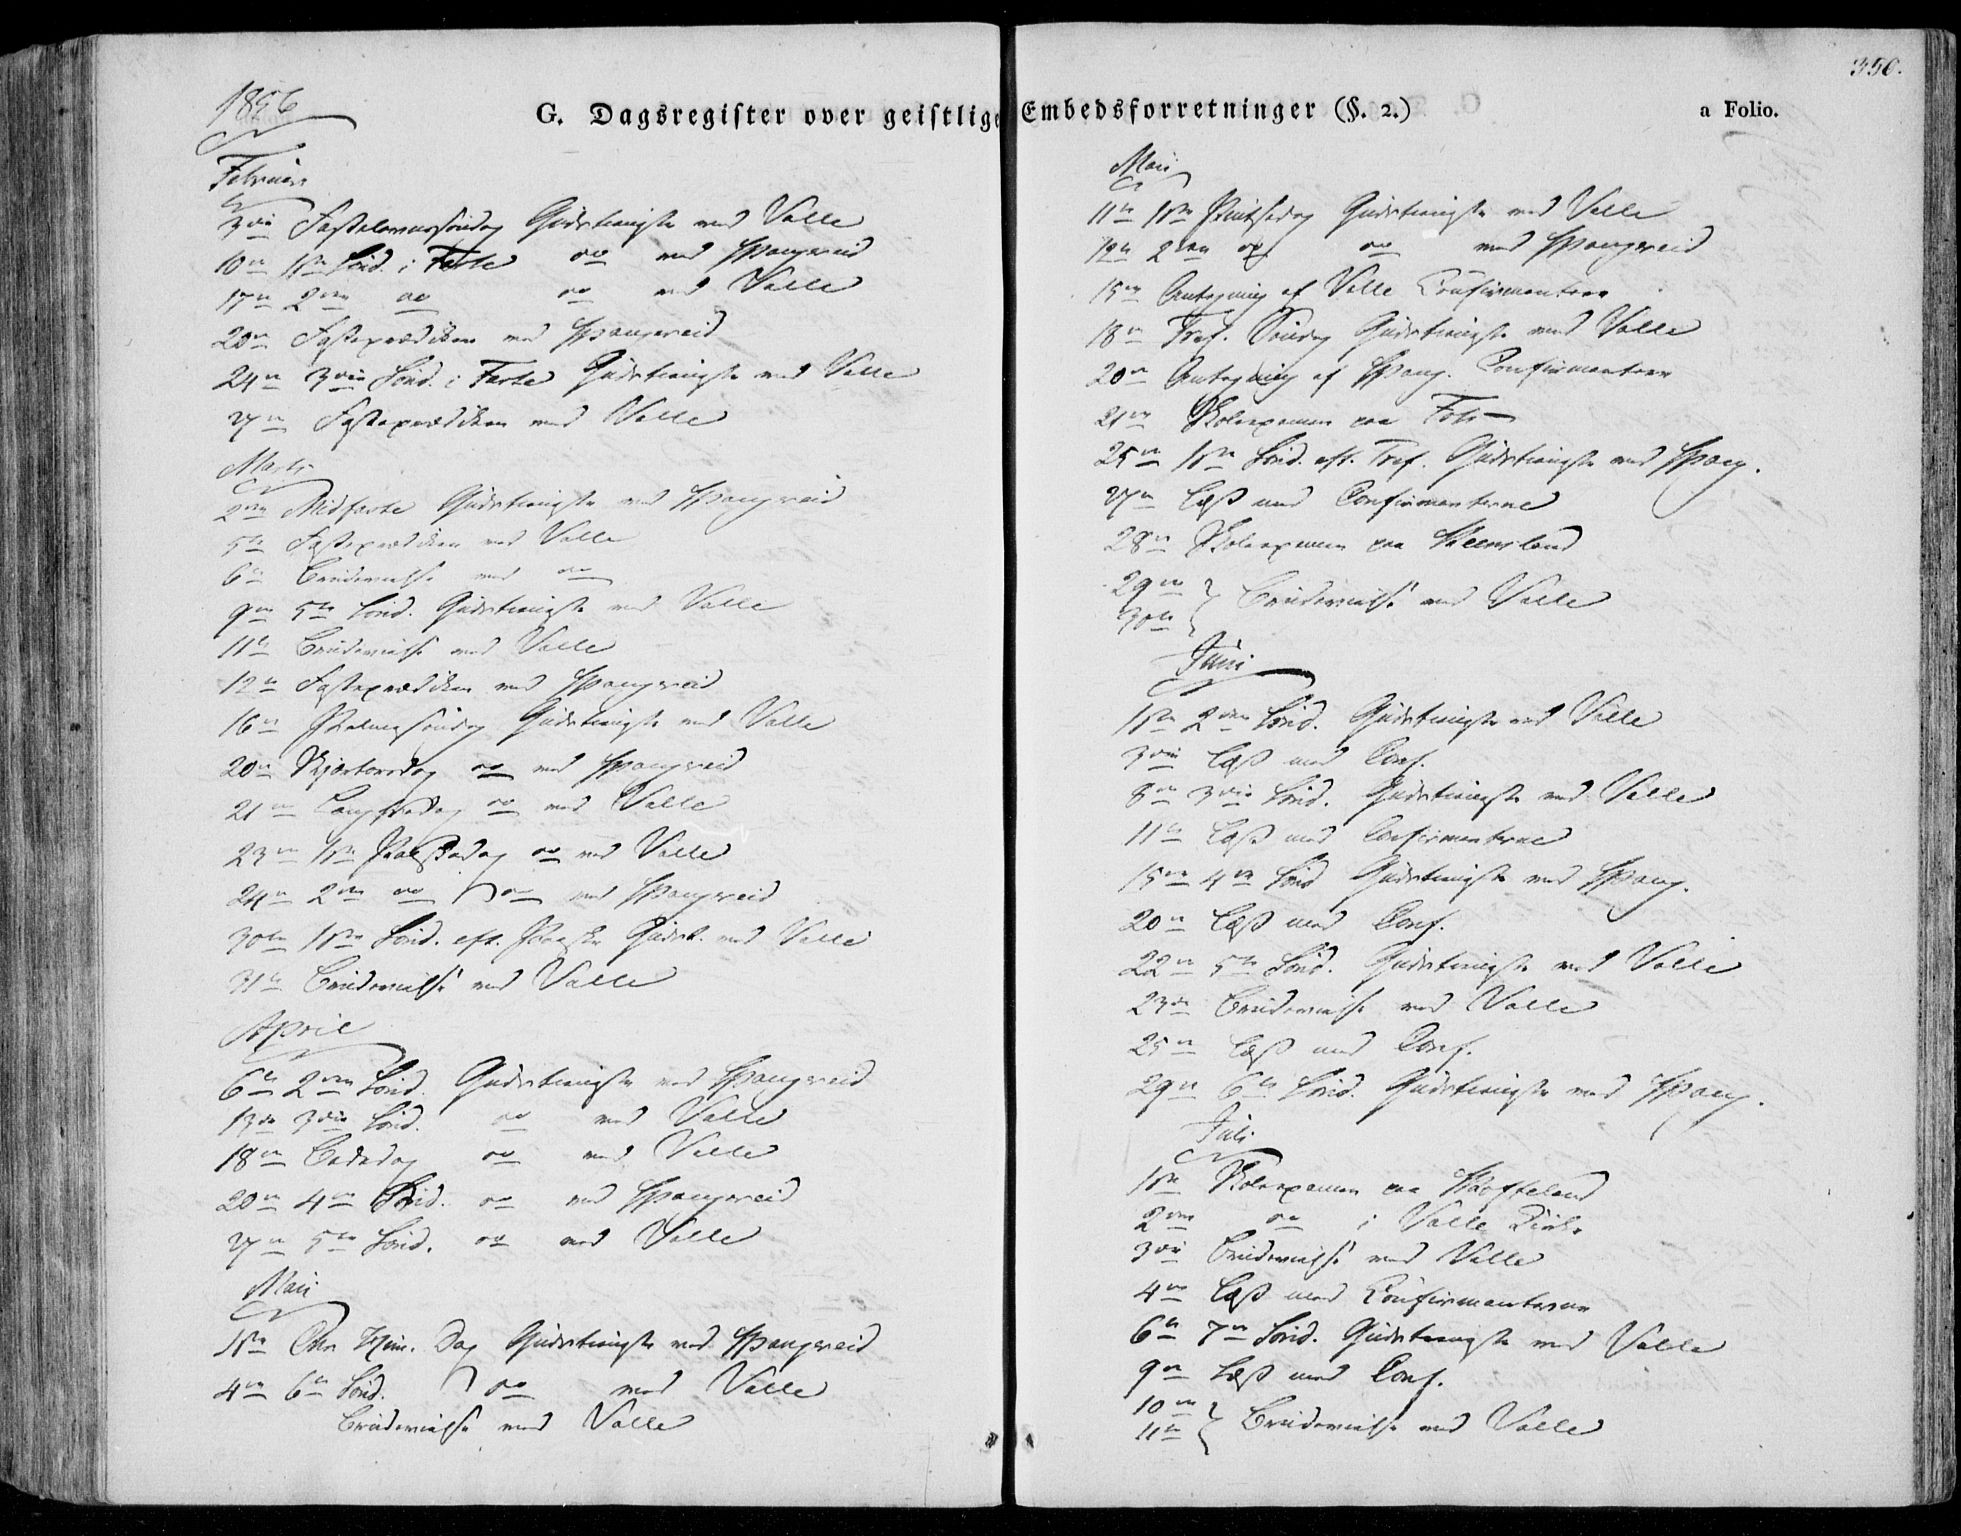 350.
G. Dagsregister over geistlige Embedsforretninger (§. 2.)
a Folio.
1856
Februar
3die Fastelavnssøndag Gudstieneste ved Valle
10de 1ste Sønd. i Faste do ved Spangereid
17de 2den do do ved Valle
20de Fasteprædiken ved Spangereid
24de 3die Sønd. i Faste Gudstieneste ved Valle
27de Fasteprædiken ved Valle
Marts
2den Midfaste Gudstieneste ved Spangereid
5te Fasteprædiken ved Valle
6te Brudevielse ved do
9de 5te Sønd. Gudstieneste ved Valle
11te Brudevielse ved Valle
12te Fasteprædiken ved Spangereid
16de Palmesøndag Gudstieneste ved Valle
20de Skjærtorsdag do ved Spangereid
21de Langfredag do ved Valle
23de 1ste Paaskedag do ved Valle
24de 2den do do ved Spangereid
30te 1ste Sønd. eft. Paaske Gudst. ved Valle
31te Brudevielse ved Valle
April
6te 2den Sønd. Gudstieneste ved Spangereid
13de 3die Sønd. do ved Valle
18de Bededag do ved Valle
20de 4de Sønd. do ved Spangereid
27de 5te Sønd. do ved Valle
Mai
1ste Chr. Him. Dag Gudstieneste ved Spangereid
4de 6te Sønd. do ved Valle
Brudevielse ved Valle
Mai
11te 1ste Pintsedag Gudstieneste ved Valle
12te 2den do do ved Spangereid
15de Antegning af Valle Confirmanter
18de Tref. Søndag Gudstieneste ved Valle
20de Antegning af Spang. Confirmanter
21de Skoleexamen paa
25de 1ste Sønd. eft. Tref. Gudstieneste ved Spang.
27de Læst med Confirmanterne
28de Skoleexamen paa
29de
30te } Brudevielse ved Valle
Juni
1ste 2den Sønd. Gudstieneste ved Valle
3die Læst med Conf.
8de 3die Sønd. Gudstieneste ved Valle
11te Læst med Confirmanterne
15de 4de Sønd Gudstieneste ved Spang.
20de Læst med Conf.
22de 5te Sønd. Gudstieneste ved Valle
23de Brudevielse ved Valle
25de Læst med Conf.
29de 6te Sønd. Gudstieneste ved Spang.
Juli
1ste Skoleexamen paa
2den do i Valle Kirke
3die Brudevielse ved Valle
4de Læst med Confirmanterne
6te 7de Sønd. Gudstieneste ved Valle
9de Læst med Conf.
10de
11te } Brudevielse ved Valle